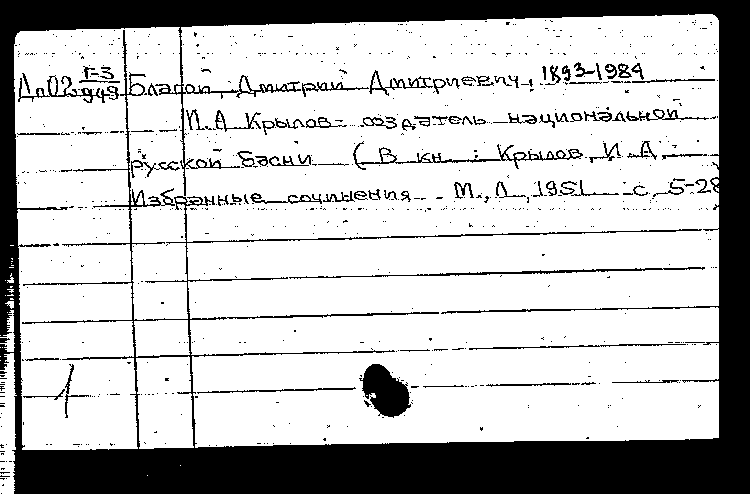 Дп02 Г-3/949 Благой, Дмитрий Дмитриевич, 1893-1984
И.А Крылов - создатель национальной
русской басни (В кн.: Крылов, И.А.
Избранные сочинения. М., Л., 1951 с. 5-28
1